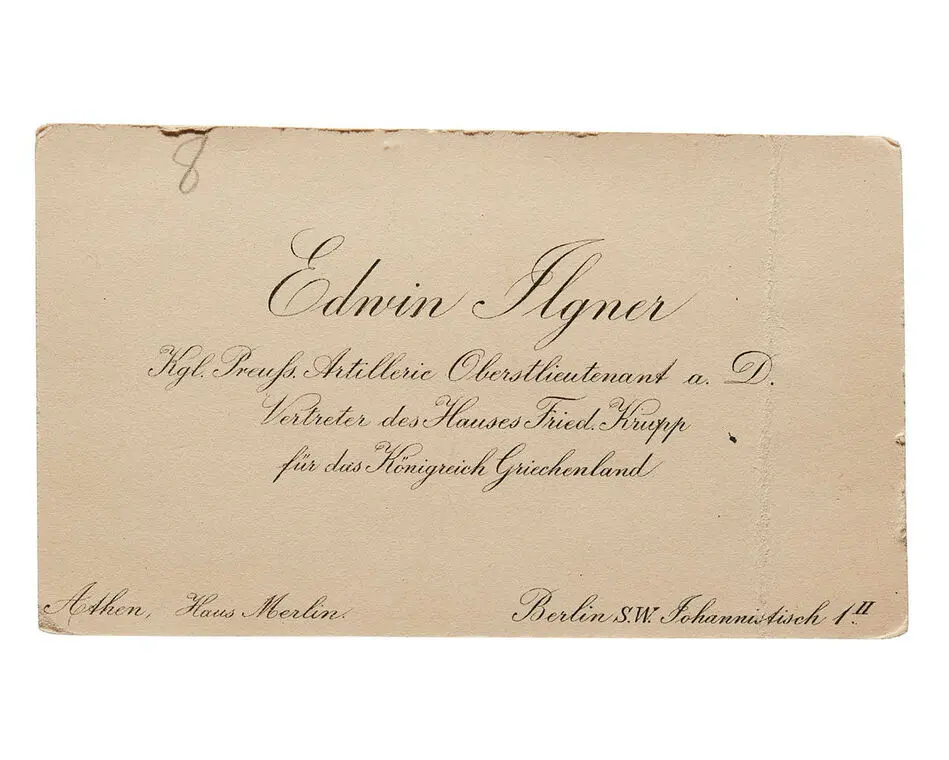 8
Edwin Ilgner
Kgl. Preuſs. Artillerie Oberstlieutenant a. D.
Vertreter des Hauses Fried. Krupp
für das Königreich Griechenland
Athen, Haus Merlin.
Berlin S.W. Johannistisch 1 II